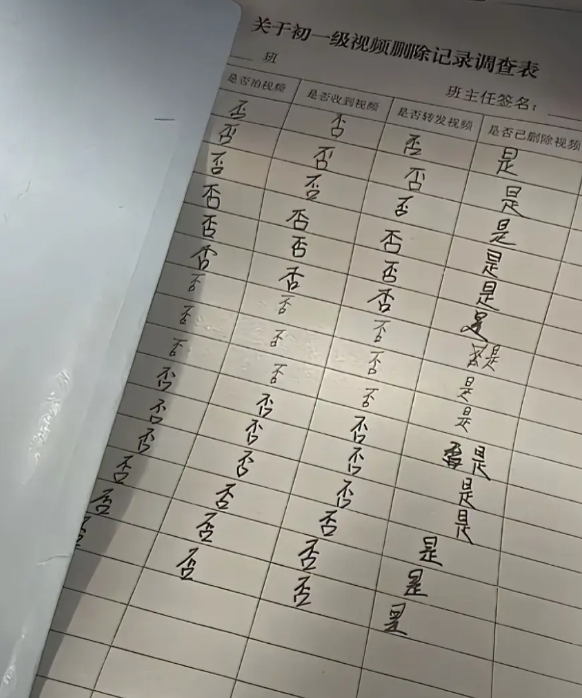 关于初一级视频删除记录调查表
班 班主任签名：
是否拍视频 是否收到视频 是否转发视频 是否已删除视频
否 否 否 是
否 否 否 是
否 否 否 是
否 否 否 是
否 否 否 是
否 否 否 是
否 否 否 是
否 否 否 是
否 否 否 是
否 否 否 是
否 否 否 是
否 否 否 是
否 否 否 是
否 否 否 是
否 否 是